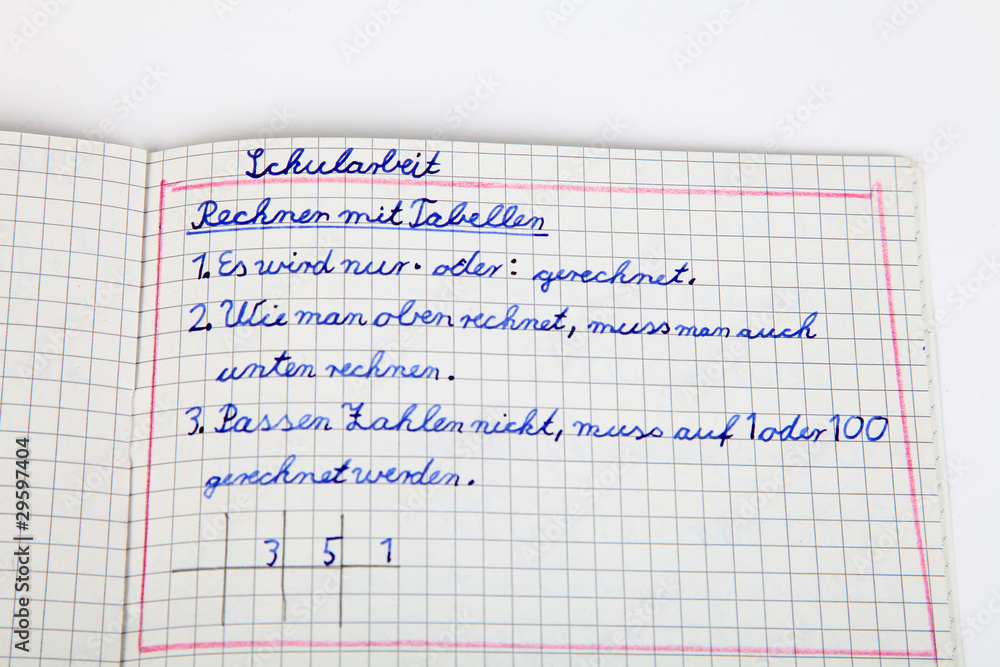 Schularbeit
Rechnen mit Tabellen
1. Es wird nur · oder : gerechnet.
2. Wie man oben rechnet, muss man auch
unten rechnen.
3. Passen Zahlen nickt, muss auf 1 oder 100
gerechnet werden.
3 5 1
Adobe Stock | #29597404